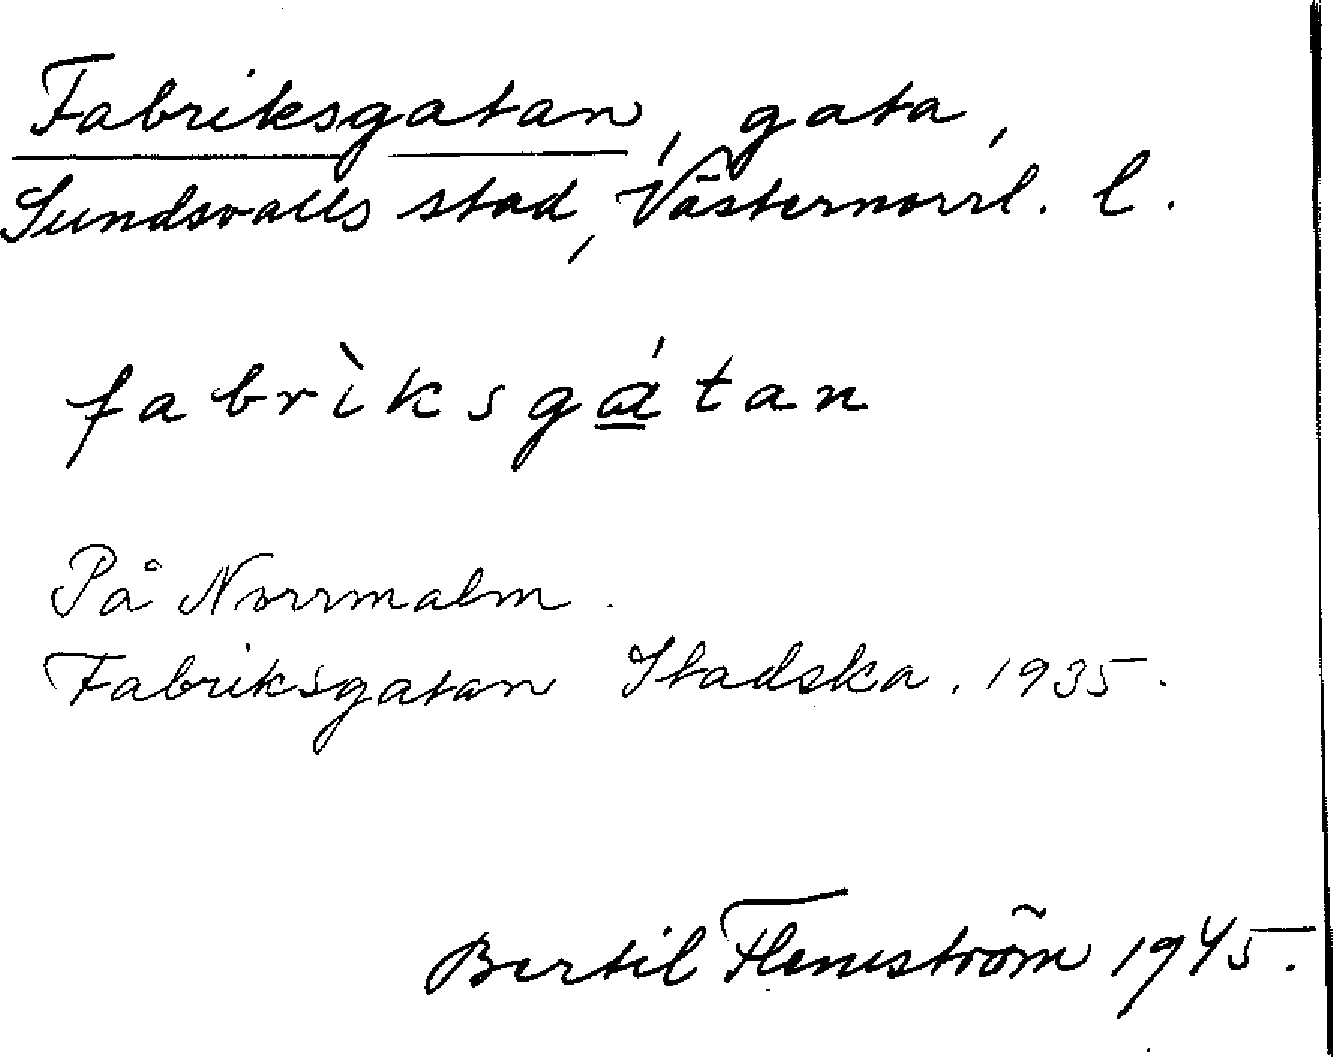 Fabriksgatan, gata,
Sundsvalls stad, Västernorrl. l.
fabrìksgátan
På Norrmalm.
Fabriksgatan Stadska. 1935.
Bertil Flemström 1945.